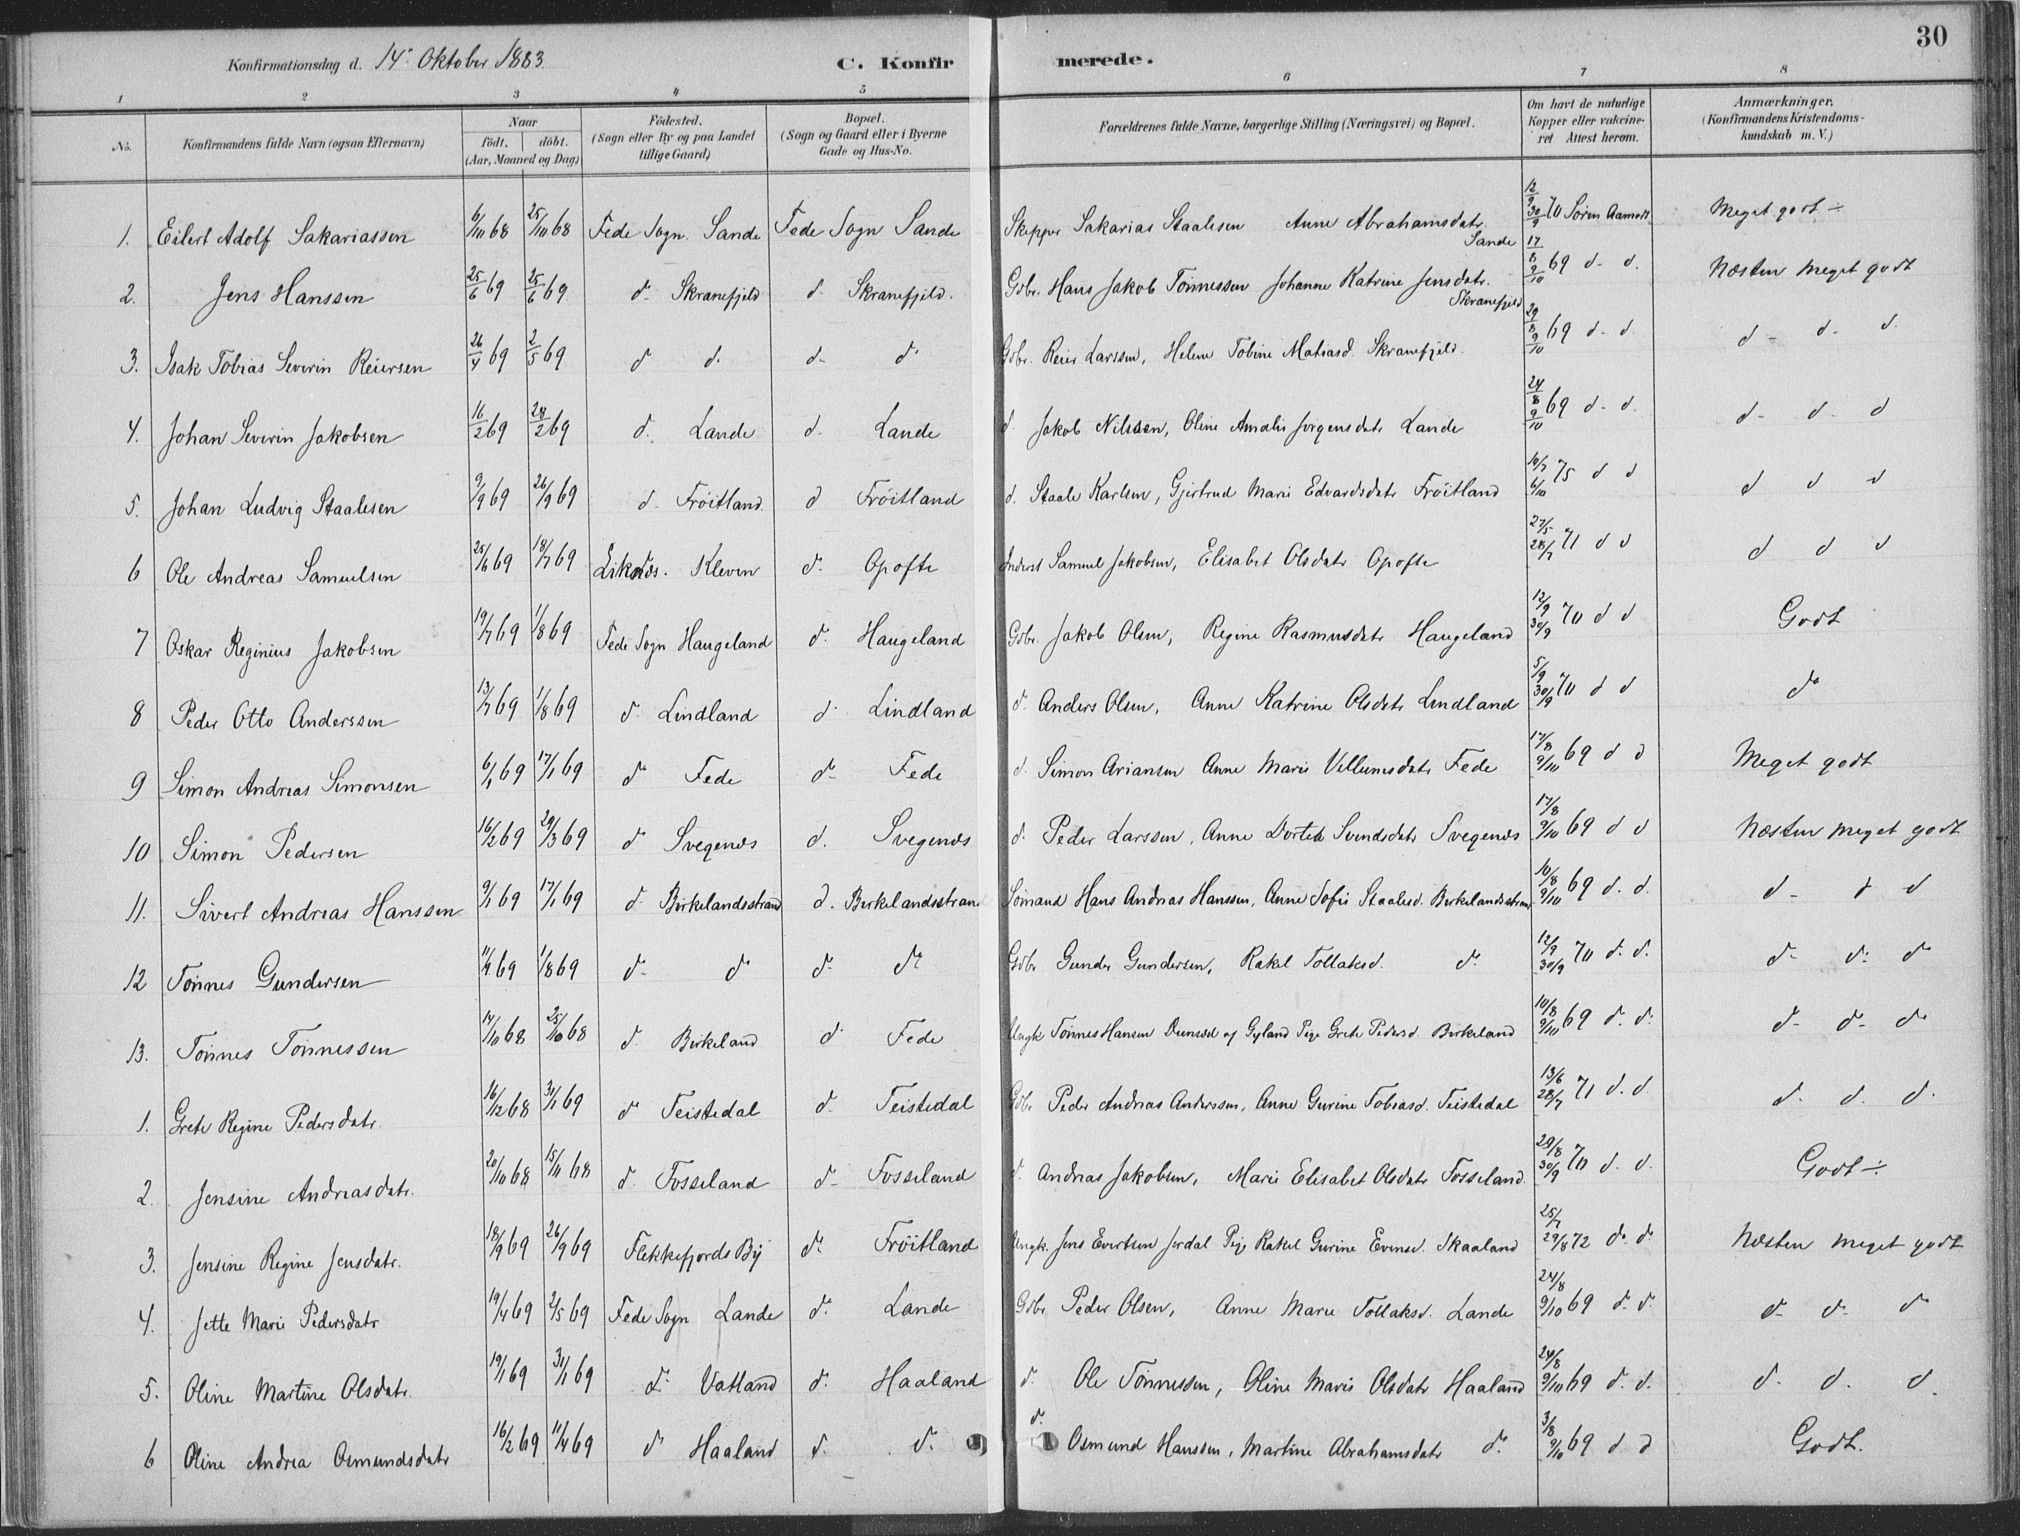 Konfirmationsdag d. 14: Oktober 1883 C. Konfirmerede. 30
1 2 3 4 5 6 7 8
No. Konfirmandens fulde Navn (ogsaa Efternavn) Naar født. døbt. (Aar, Maaned og Dag) Födested. (Sogn eller By og paa Landet tillige Gaard) Bopæl. (Sogn og Gaard eller i Byerne Gade og Hus-No. Forældrenes fulde Navne, borgerlige Stilling (Næringsvei) og Bopæl. Om havt de naturlige Kopper eller vakcineret Attest herom. Anmærkninger, (Konfirmandens Kristendomskundskab m. V.)
1. Eilert Adolf Sakariassen 6/10 68 25/10 68 Fede Sogn Sande Fede Sogn Sande Skipper Sakarias Staalesen Anne Abrahamsdatr. Sande 12/9 30/9 70 Sören Aamodt Meget godt ÷
2. Jens Hanssen 25/6 69 25/6 69 d- Skranefjeld d- Skranefjeld. Gdbr. Hans Jakob Tönnessen Johanne Katrine Jensdatr. Skranefjeld 17/8 9/10 69 d- d. Næsten meget godt
3. Isak Tobias Severin Reiersen 26/4 69 2/5 69 d d. d- d- Gdbr. Reier Larssen, Helene Tobine Matiasd. Skranefjeld. 29/8 9/10 69 d- d. d- d- d.
4. Johan Severin Jakobsen 16/2 69 28/2 69 d. Lande d. Lande d. Jakob Nilssen, Oline Amalie Jörgensdatr Lande 24/8 9/10 69 d- d. d- d- d
5. Johan Ludvig Staalesen 9/9 69 26/9 69 d- Fröitland. d Fröitland d. Staale Karlsen, Gjertrud Marie Edvardsdatr Fröitland 10/7 6/10 75 d d d d d
6 Ole Andreas Samuelsen 25/6 69 18/7 69 Kleven d. Opofte Inderst Samuel Jakobsen, Elisabet Olsdatr Opofte 27/5 28/7 71 d d d d d
7 Oskar Reginius Jakobsen 19/7 69 1/8 69 Fede Sogn Haugeland d. Haugeland Gdbr. Jakob Olsen, Regine Rasmusdatr Haugeland 12/9 30/9 70 d d Godt
8 Peder Otto Anderssen 13/7 69 1/8 69 d. Lindland d. Lindland d. Anders Olsen, Anne Katrine Olsdatr Lindland 5/9 30/9 70 d d do
9 Simon Andreas Simonsen 6/1 69 17/1 69 d. Fede d- Fede d. Simon Ariansen Anne Marie Villumsdatr Fede 17/8 9/10 69 d d Meget godt
10 Simon Pedersen 16/2 69 29/3 69 d Svegenes d. Svegenes d. Peder Larssen, Anne Dortea Svendsdatr Svegenes 17/8 9/10 69 d d Næsten meget godt
11. Sivert Andreas Hanssen 9/1 69 17/1 69 d. Birkelandsstrand d. Birkelandsstrand Sömand Hans Andreas Hanssen, Anne Sofie Staalesd. Birkelandsstrand 10/8 9/10 69 d. d. d- d d
12 Tönnes Gundersen 11/7 69 1/8 69 d- do d- do Gdbr Gunder Gundersen, Rakel Tollaksd. do 12/9 30/9 70 d. d. d- d- do
13. Tönnes Tönnessen 14/10 68 25/10 68 d. Birkeland d. Fede Ungk Tönnes Hansen af Gyland Pige Grete Pedersd. Birkeland 10/8 9/10 69 d. d. d- d- do
1. Grete Regine Pedersdatr. 16/12 68 31/1 69 d. Teistedal d. Teistedal Gdbr. Peder Andreas Anderssen, Anne Gurine Tobiasd. Teistedal 13/6 28/7 71 d. d d. d. d.
2 Jensine Andreasdatr. 20/10 68 15/11 68 d. Fosseland d- Fosseland d. Andreas Jakobsen, Marie Elisabet Olsdatr Fosseland. 29/8 30/9 70 d. d. Godt ÷
3. Jensine Regine Jensdatr. 18/9 69 26/9 69 Flekkefjords By do Fröitland Ungk. Jens Evertsen Jerdal Pige Rakel Gurine Evensd. Skaaland 25/7 29/8 72 d. do Næsten meget godt
4. Jette Marie Pedersdatr 19/4 69 2/5 69 Fede Sogn Lande d. Lande Gdbr. Peder Olsen, Anne Marie Tollaksd. Lande 24/8 9/10 69 d- d. d- d- do
5. Oline Martine Olsdatr. 19/1 69 31/1 69 d. Vatland d. Haaland d. Ole Tönnessen, Oline Marie Olsdatr Haaland 24/8 9/10 69 d. d. d. d. d.
6 Oline Andrea Osmundsdatr 16/2 69 11/4 69 d. Haaland d. d. d. Osmund Hanssen, Martine Abrahamsdatr do 3/8 9/10 69 d. d Godt.